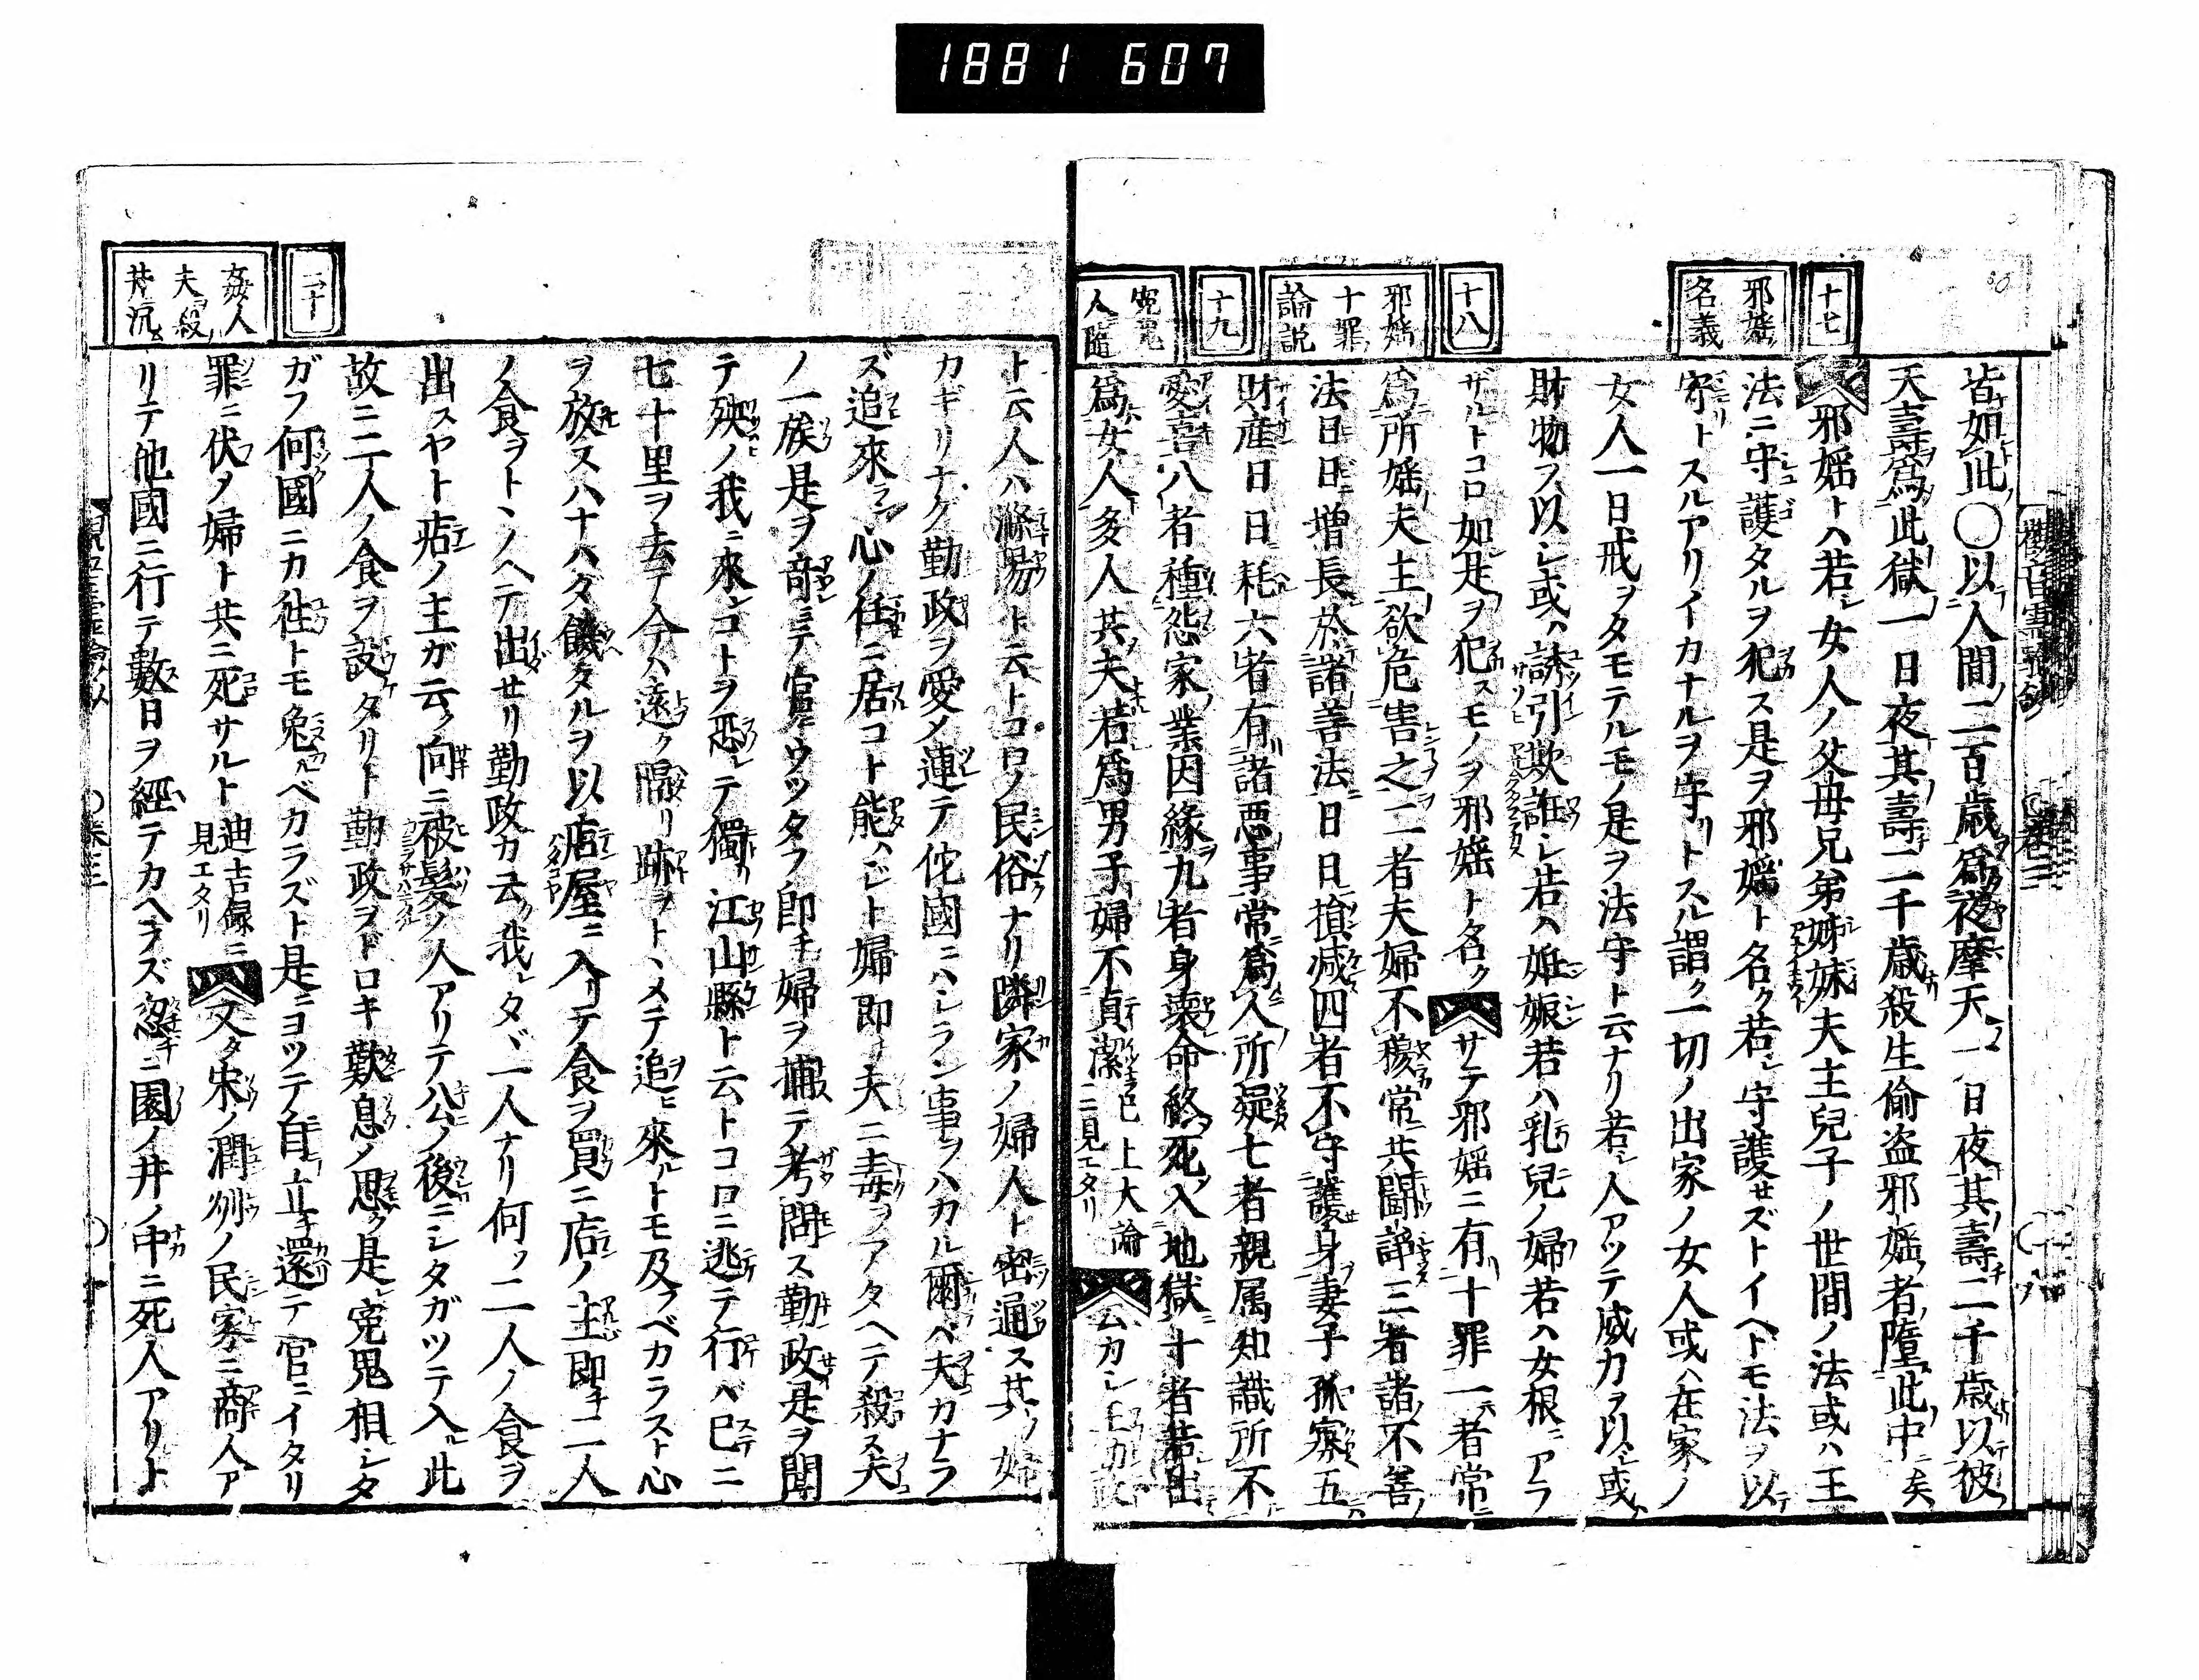 1881 607
十七
邪婬
名義
十八
邪婬
十罪
論説
十九
寃鬼
人隨
皆如此〇以人間二百歳爲夜摩天一日夜其壽二千歳以彼
天壽爲此獄一日夜其壽二千歳殺生偷盗邪婬者墮此中矣
邪婬トハ若シ女人ノ父母兄弟姊妹夫主兒子ノ世間ノ法或ハ王
法ニ守護タルヲ犯ス是ヲ邪婬ト名ク若シ守護セズトイヘトモ法ヲ以
守トスルアリイカナルヲ守リトスル謂ク一切ノ出家ノ女人或ハ在家ノ
女人一日戒ヲタモテルモノ是ヲ法守ト云ナリ若シ人アツテ威力ヲ以シ或ハ
財物ヲ以シ或ハ誘引欺誑シ若ハ姙娠若ハ乳兒ノ婦若ハ女根ニアラ
ザルトコロ如是ヲ犯スモノヲ邪婬ト名ク サテ邪婬ニ有十罪一者常
爲所婬夫主欲危害之二者夫婦不穆常共鬪諍三者諸不善
法日日増長於諸善法日日損减四者不守護身妻子孤寡五
財産日日耗六者有諸悪事常爲人所疑七者親属知識所不
愛喜八者種怨家業因縁九者身壊命終死入地獄十者若出
爲女人多人共夫若爲男子婦不貞潔 已上大論
ニ見エタリ
ト云人ハ滌陽ト云トコロノ民俗ナリ隣家ノ婦人ト密通ス其ノ婦
カギリナク勤政ヲ愛メ連テ佗國ニハシラン事ヲハカル爾ベ夫カナラ
ズ追來ラン心ノ任ニ居コト能ハジト婦即チ夫ニ毒ヲアタヘテ殺ス夫
ノ一族是ヲ竒ミテ官ニウツタフ即チ婦ヲ捕テ考問ス勤政是ヲ聞
テ殃ノ我ニ來ンコトヲ恐レテ獨リ江山縣ト云トコロニ逃テ行バ已ニ
七十里ヲ去テ今ハ遠ク隔リ跡ヲトヽメテ追ヒ來ルトモ及フベカラスト心
ヲ放スハナハダ饑タルヲ以店屋ニ入リテ食ヲ買ニ店ノ主即チ二人
ノ食ヲトヽノヘテ出セリ勤政カ云ク我レタヾ一人ナリ何ソ二人ノ食ヲ
出スヤト店ノ主ガ云ク向ニ被髮ノ人アリテ公ノ後ニシタガツテ入ル此
故ニ二人ノ食ヲ設タリト勤政ヲドロキ歎息ノ思ク是レ寃鬼相シタ
ガフ何國ニカ徃トモ免ルベカラズト是ニヨツテ自ラ立チ還テ官ニイタリ
罪ニ伏ノ婦ト共ニ死サルト 迪吉録ニ
見エタリ 又タ宋ノ潤州ノ民家ニ商人ア
リテ他國ニ行テ數日ヲ經テカヘラズ忽ニ園ノ井ノ中ニ死人アリト
二十
姦人
夫殺
井沉